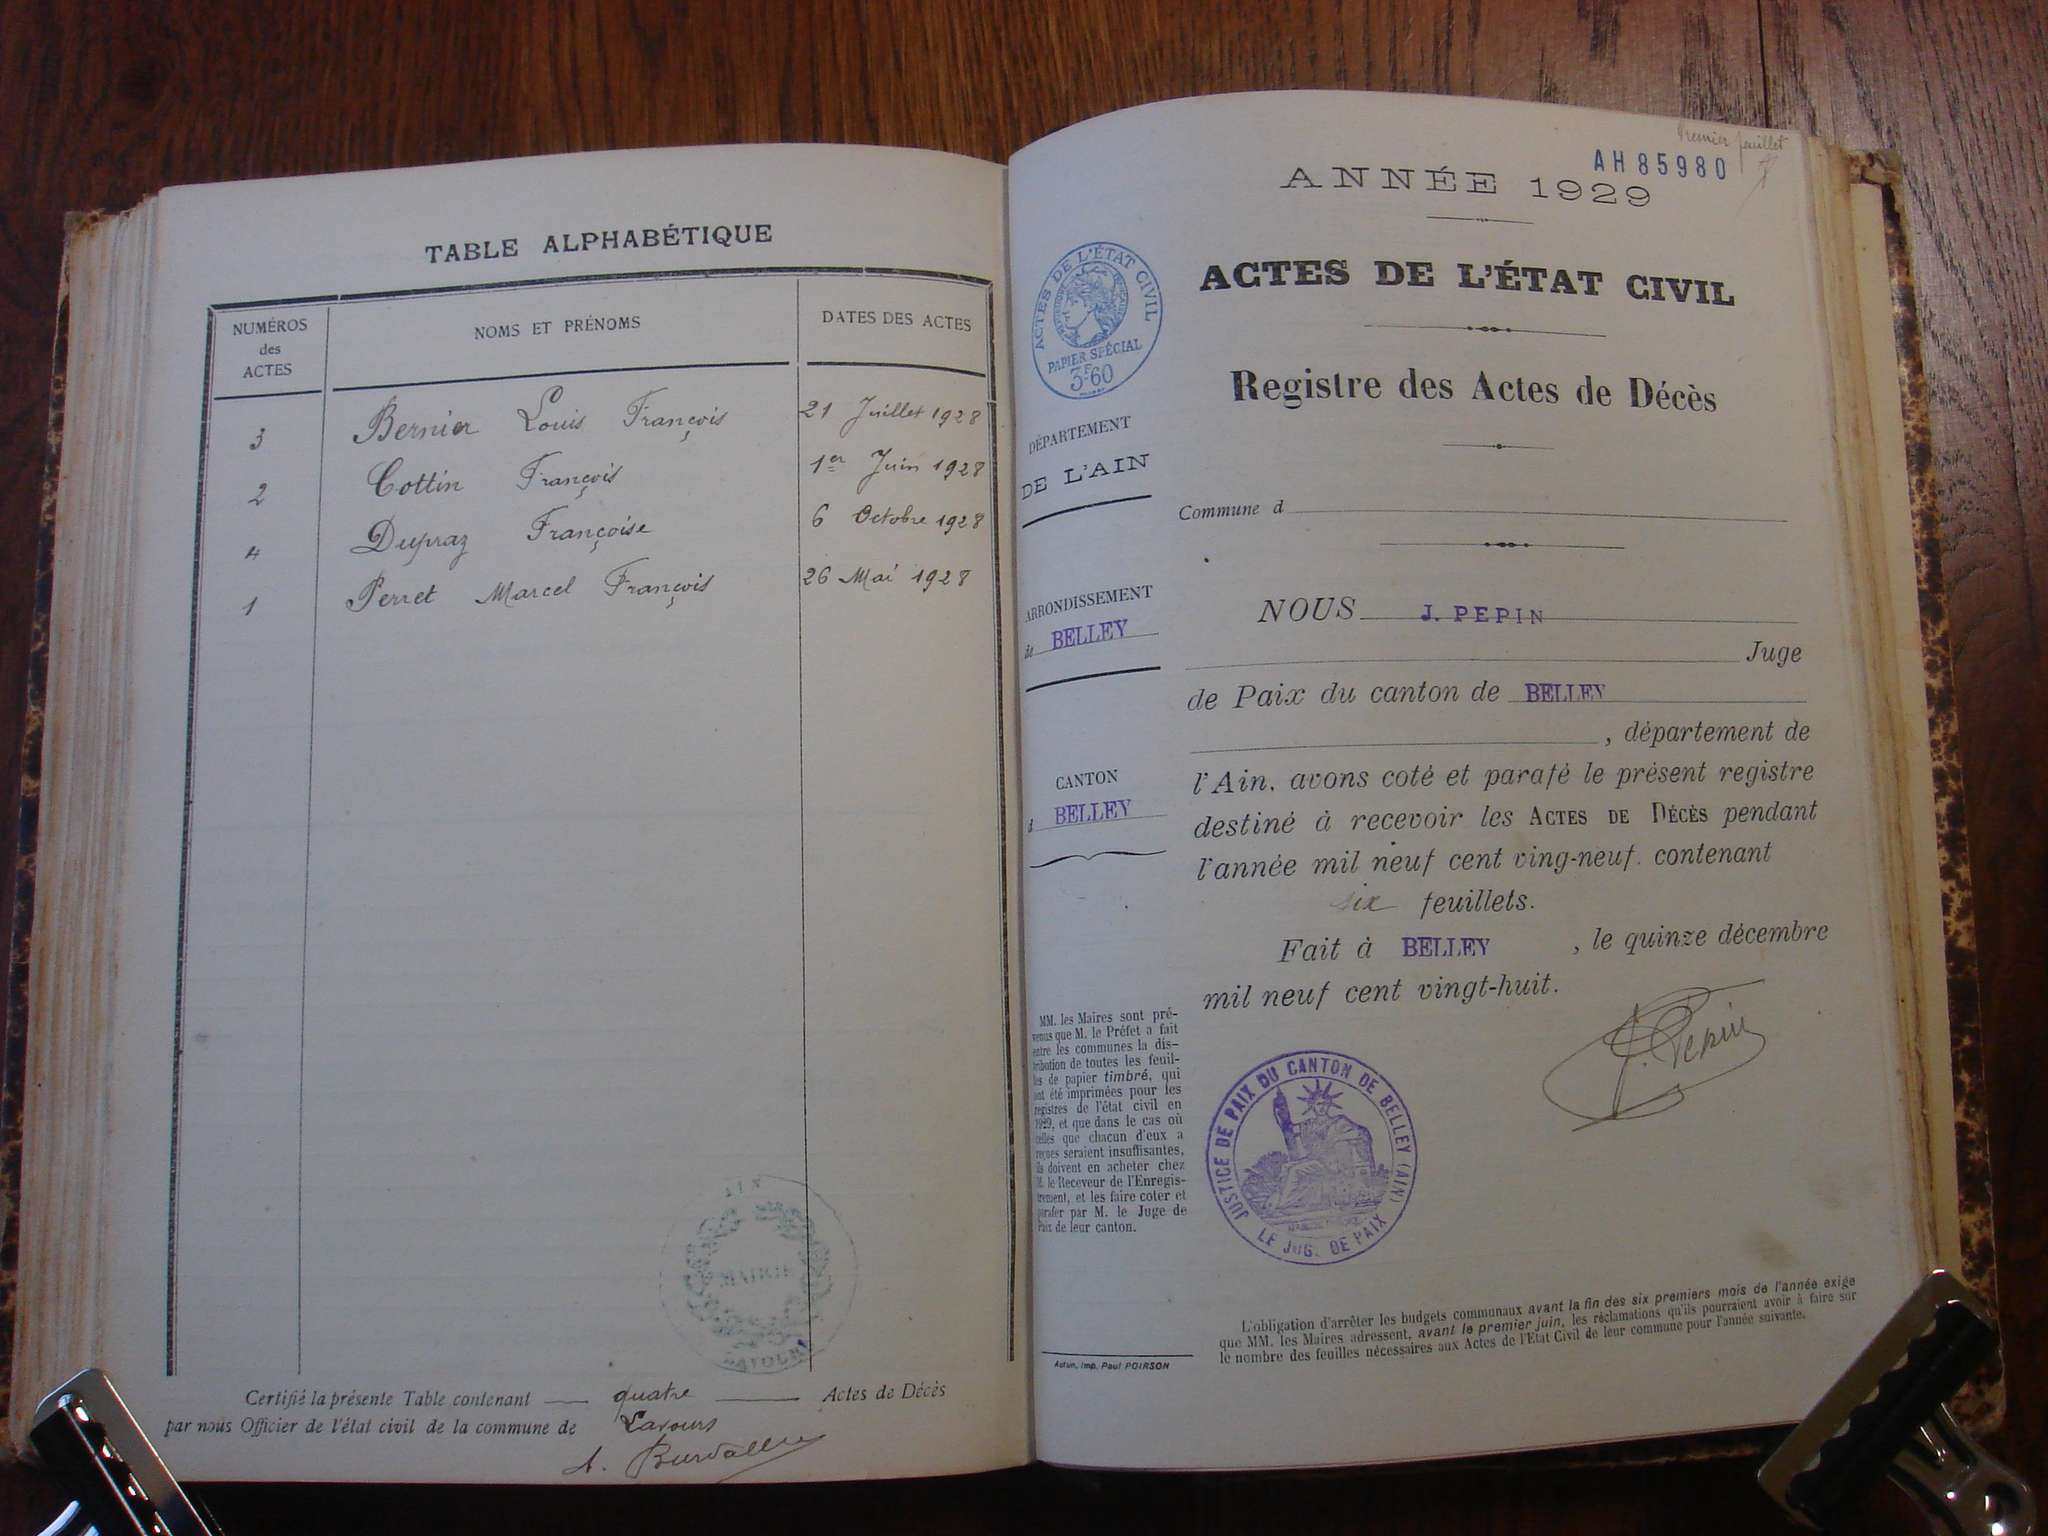 TABLE ALPHABÉTIQUE
NUMÉROS des ACTES
NOMS ET PRÉNOMS
DATES DES ACTES
3 Bernier Louis François 21 Juillet 1928
2 Cottin François 1er Juin 1928
4 Dupraz Françoise 6 Octobre 1928
1 Perret Marcel François 26 Mai 1928
AIN
MAIRIE
Certifié la présente Table contenant quatre Actes de Décès
par nous Officier de l'état civil de la commune de Lavours
Premier feuillet
AH85980
ANNÉE 1929
ACTES DE L'ÉTAT CIVIL
Registre des Actes de Décès
ACTES DE L'ÉTAT CIVIL
PAPIER SPÉCIAL
3F60
DÉPARTEMENT
DE L'AIN
ARRONDISSEMENT
de BELLEY
CANTON
d BELLEY
Commune d
NOUS J. PEPIN
Juge
de Paix du canton de BELLEY
, département de
l'Ain, avons coté et parafé le présent registre
destiné à recevoir les ACTES DE DÉCÈS pendant
l'année mil neuf cent ving-neuf. contenant
six feuillets.
Fait à BELLEY , le quinze décembre
mil neuf cent vingt-huit.
J. Pepin
MM. les Maires sont pré-
venus que M. le Préfet a fait
entre les communes la dis-
tribution de toutes les feuil-
les de papier timbré, qui
ont été imprimées pour les
registres de l'état civil en
1929, et que dans le cas où
celles que chacun d'eux a
reçues seraient insuffisantes,
ils doivent en acheter chez
M. le Receveur de l'Enregis-
trement, et les faire coter et
parafer par M. le Juge de
Paix de leur canton.
JUSTICE DE PAIX DU CANTON DE BELLEY (AIN)
LE JUGE DE PAIX
L'obligation d'arrêter les budgets communaux avant la fin des six premiers mois de l'année exige
que MM. les Maires adressent, avant le premier juin, les réclamations qu'ils pourraient avoir à faire sur
le nombre des feuilles nécessaires aux Actes de l'Etat Civil de leur commune pour l'année suivante.
Autun, Imp. Paul POIRSON